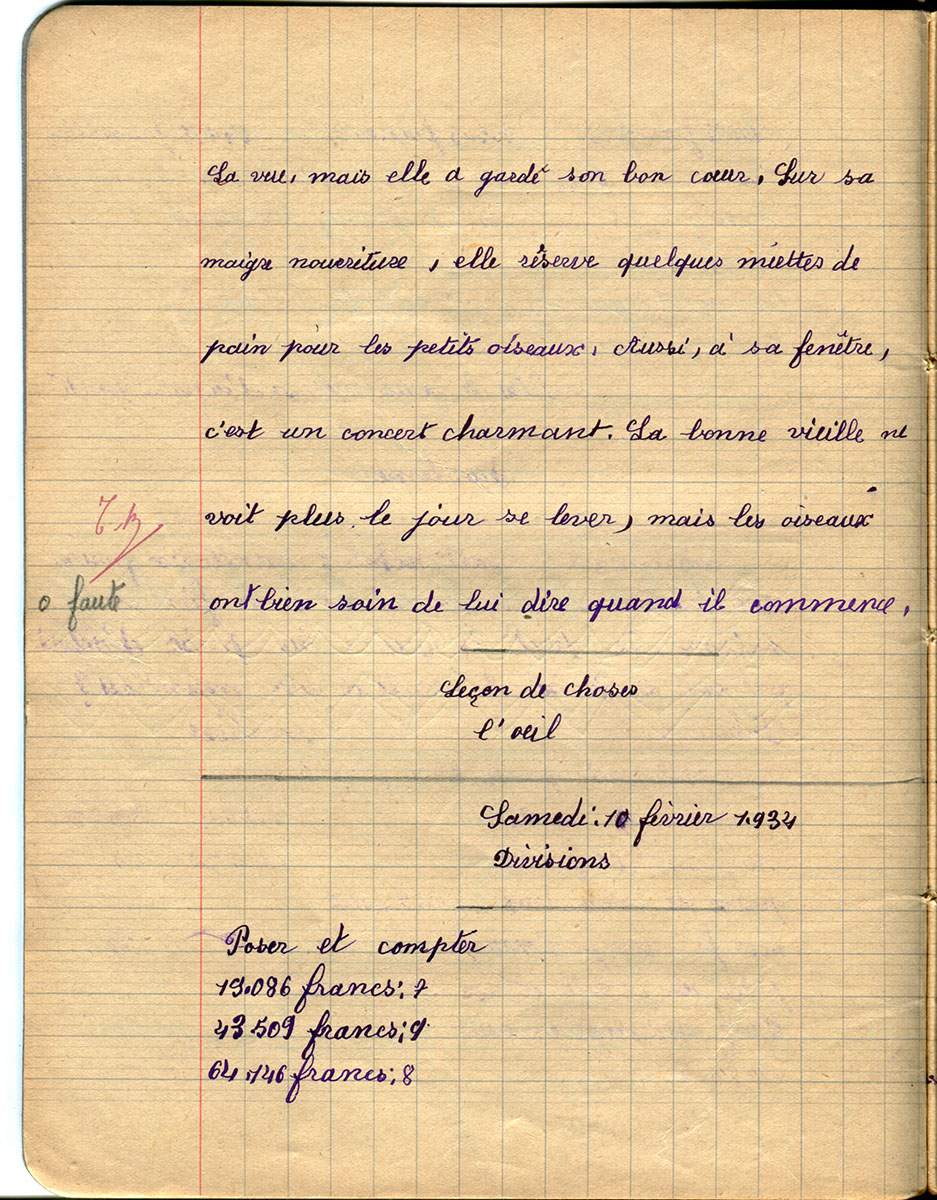 La vue, mais elle a gardé son bon cœur. Sur sa
maigre nourriture, elle réserve quelques miettes de
pain pour les petits oiseaux. Aussi, à sa fenêtre,
c'est un concert charmant. La bonne vieille ne
T.B
voit plus le jour se lever, mais les oiseaux
0 faute
ont bien soin de lui dire quand il commence.
Leçon de choses
l'oeil
Samedi 10 février 1.934
Divisions
Poser et compter
19.086 francs : 7
43 509 francs : 9
64.746 francs : 8